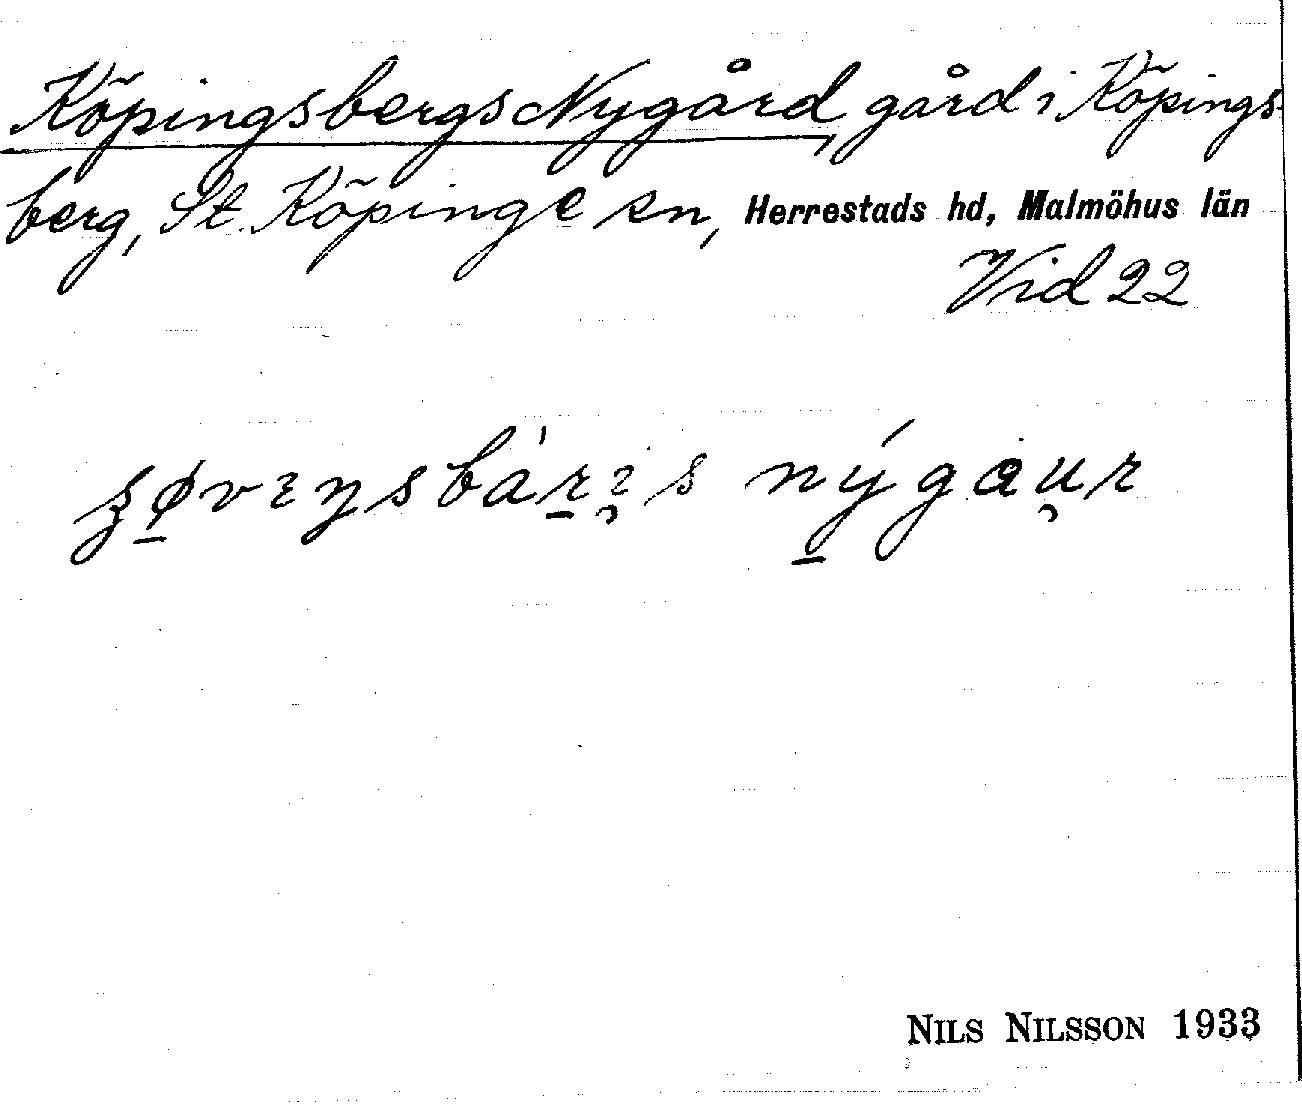 Köpingsbergs Nygård, gård i Köpings-
berg, St. Köpinge sn, Herrestads hd, Malmöhus län
Vid 22
NILS NILSSON 1933